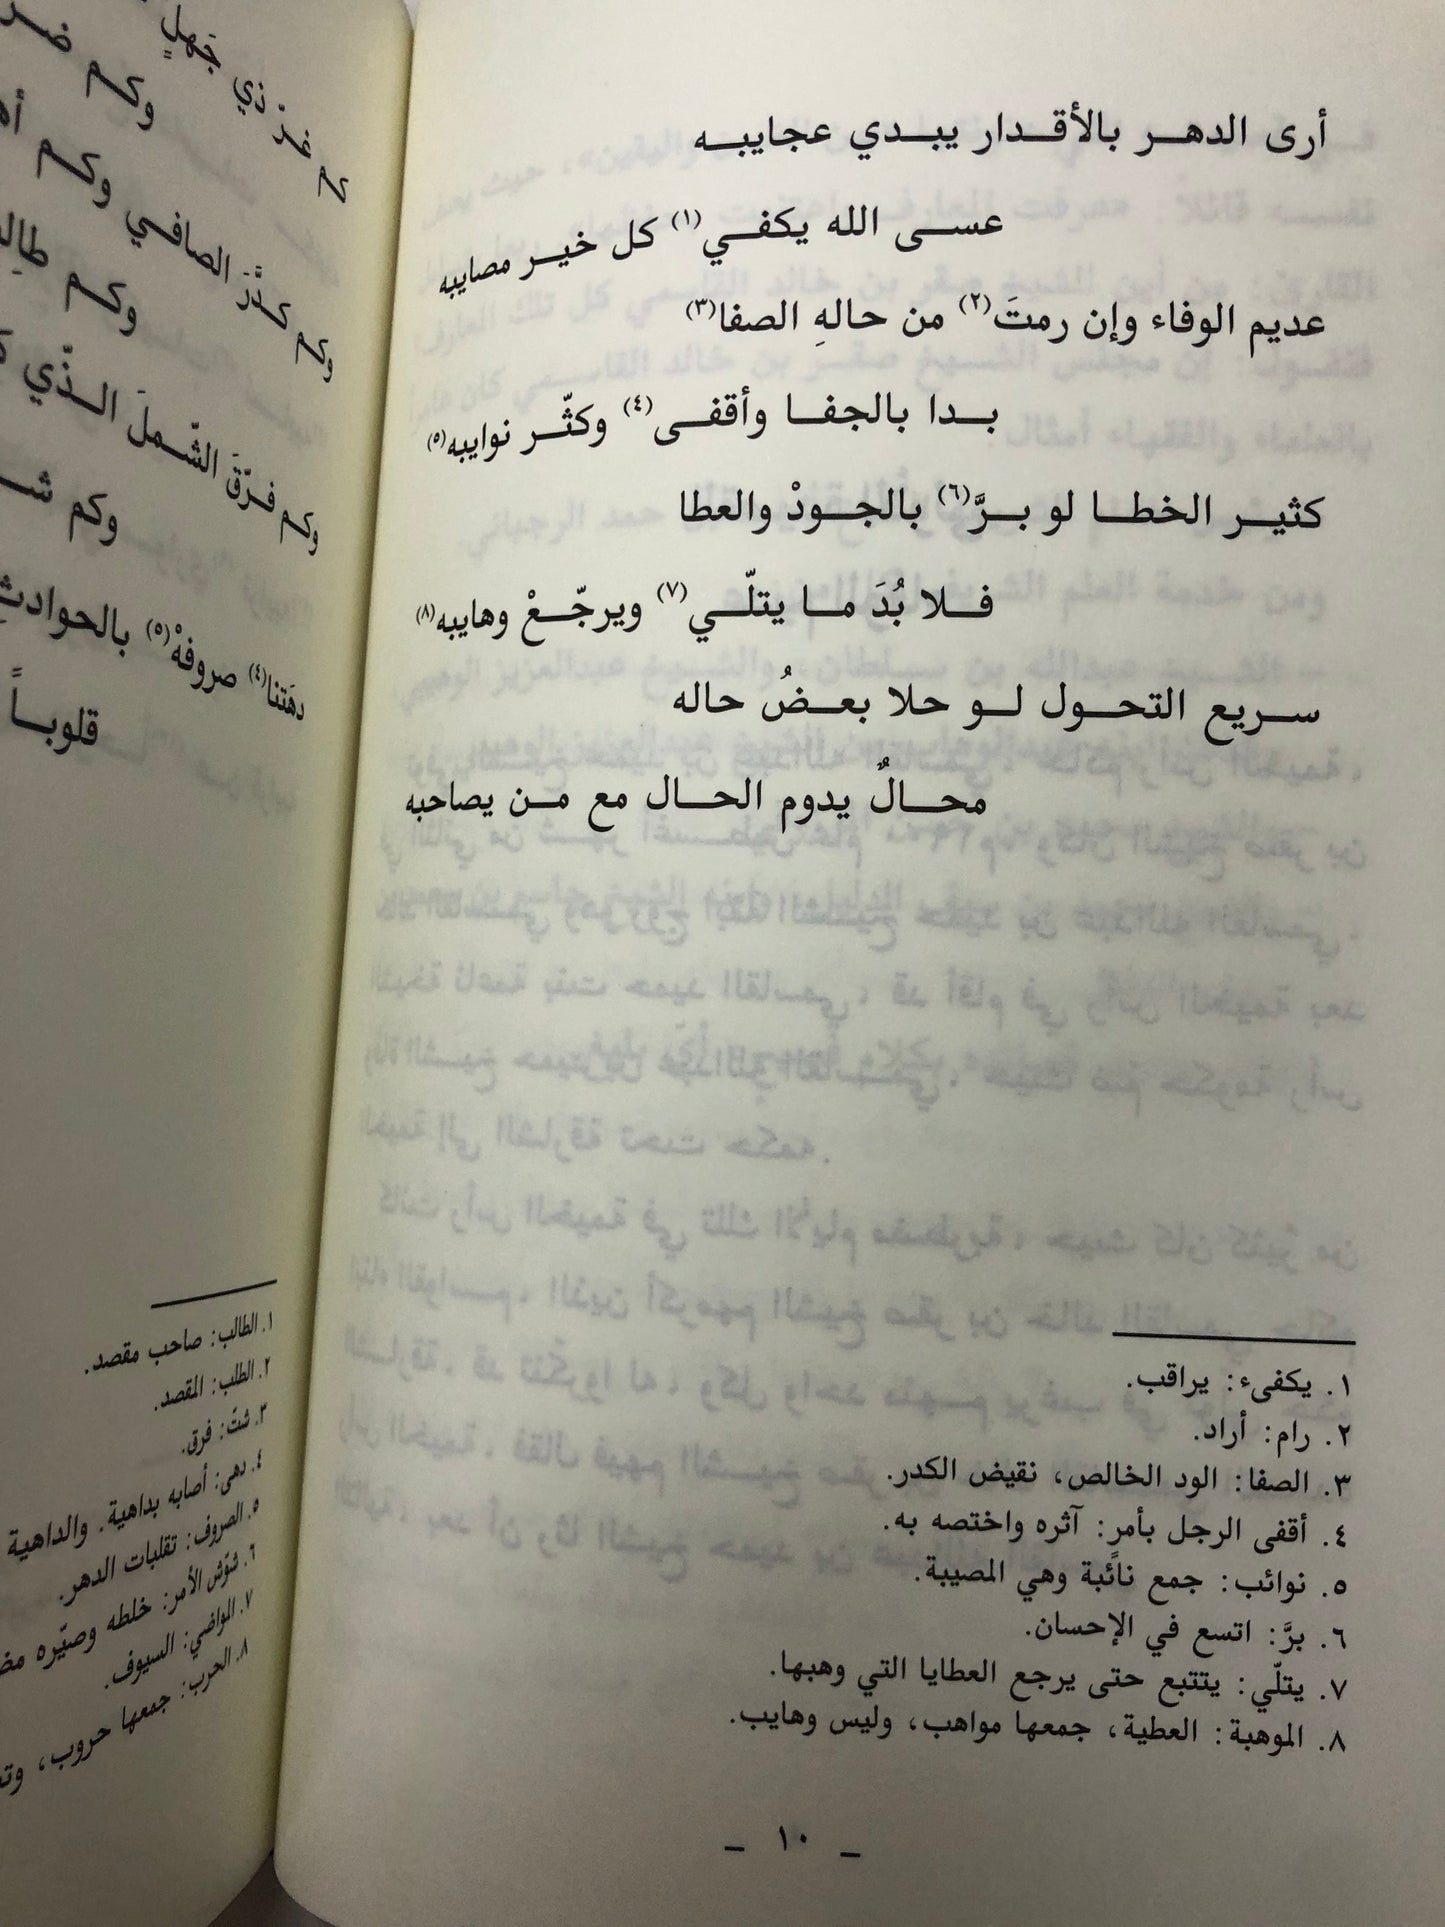 أرى الدهر بالأقدار يبدي عجايبه
عسى الله يكفي(١) كل خير مصايبه
عديم الوفاء وإن رمتَ(٢) من حالهِ الصفا(٣)
بدا بالجفا وأقفى(٤) وكثّر نوايبه(٥)
كثير الخطا لو برَّ(٦) بالجودْ والعطا
فلا بُدَ ما يتلّي(٧) ويرجّعْ وهايبه(٨)
سريع التحول لو حلا بعضُ حاله
محالٌ يدوم الحال مع من يصاحبه
١. يكفىء: يراقب.
٢. رام: أراد.
٣. الصفا: الود الخالص، نقيض الكدر.
٤. أقفى الرجل بأمرٍ: آثره واختصه به.
٥. نوائب: جمع نائبة وهي المصيبة.
٦. برَّ: اتسع في الإحسان.
٧. يتلّي: يتتبع حتى يرجع العطايا التي وهبها.
٨. الموهبة: العطية، جمعها مواهب، وليس وهايب.
– ١٠ –
كم غرْ ذي جَهلٍ
وكم
وكم كدَّرَ الصافي وكم
وكم
وكم فرّقَ الشّملَ الذّي
وكم
دهَتنا(٤) صروفهْ(٥) بالحوادث
قلوباً
١. الطالب: صاحب مقصد.
٢. الطلب: المقصد.
٣. شتّ: فرق.
٤. دهى: أصابه بداهية. والداهية
٥. الصروف: تقلبات الدهر.
٦. شوّش الأمر: خلطه وصيّره
٧. المواضي: السيوف.
٨. الحرب: جمعها حروب،